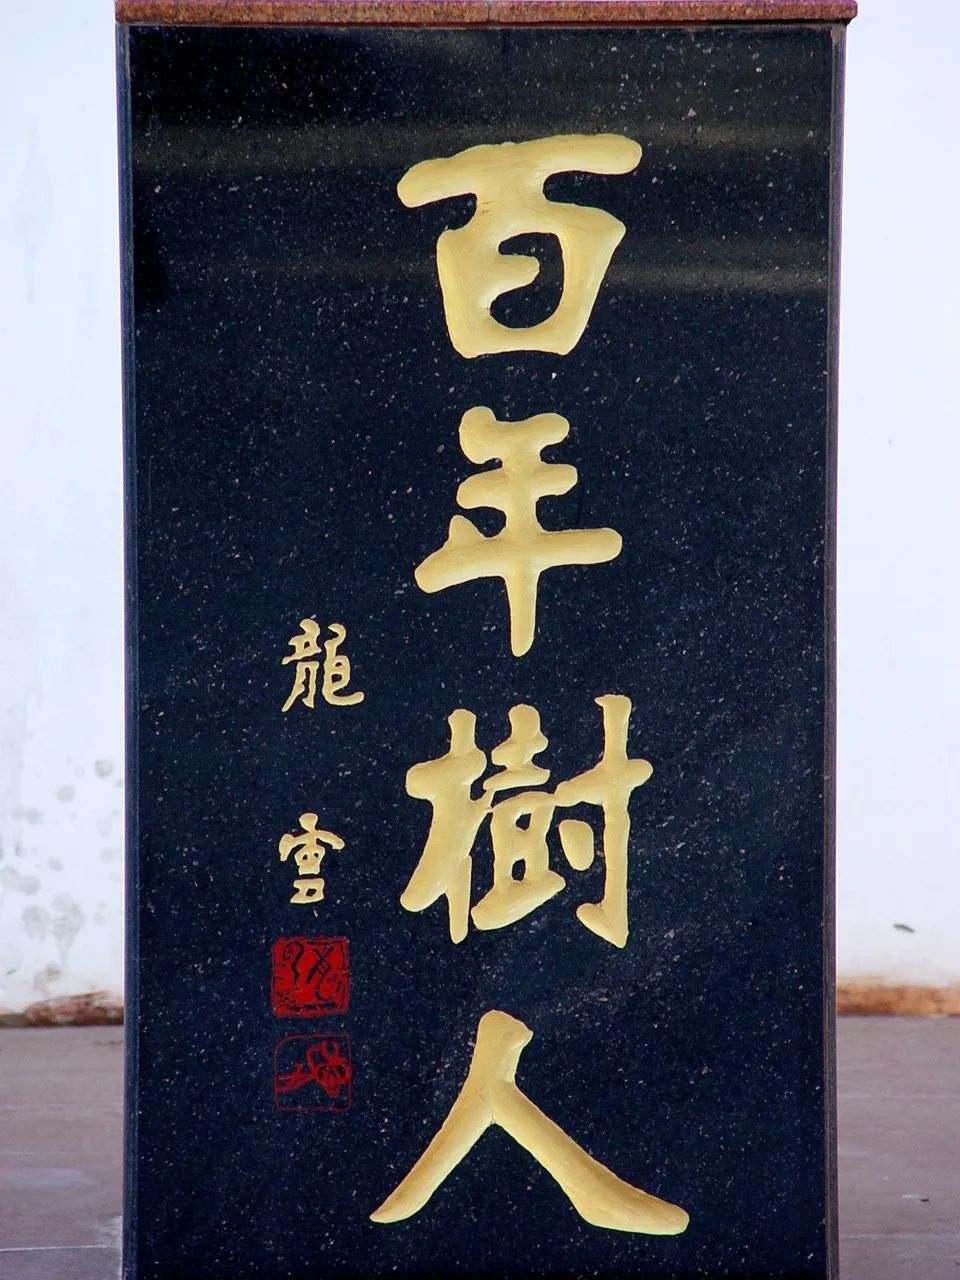 百年樹人
龍雲